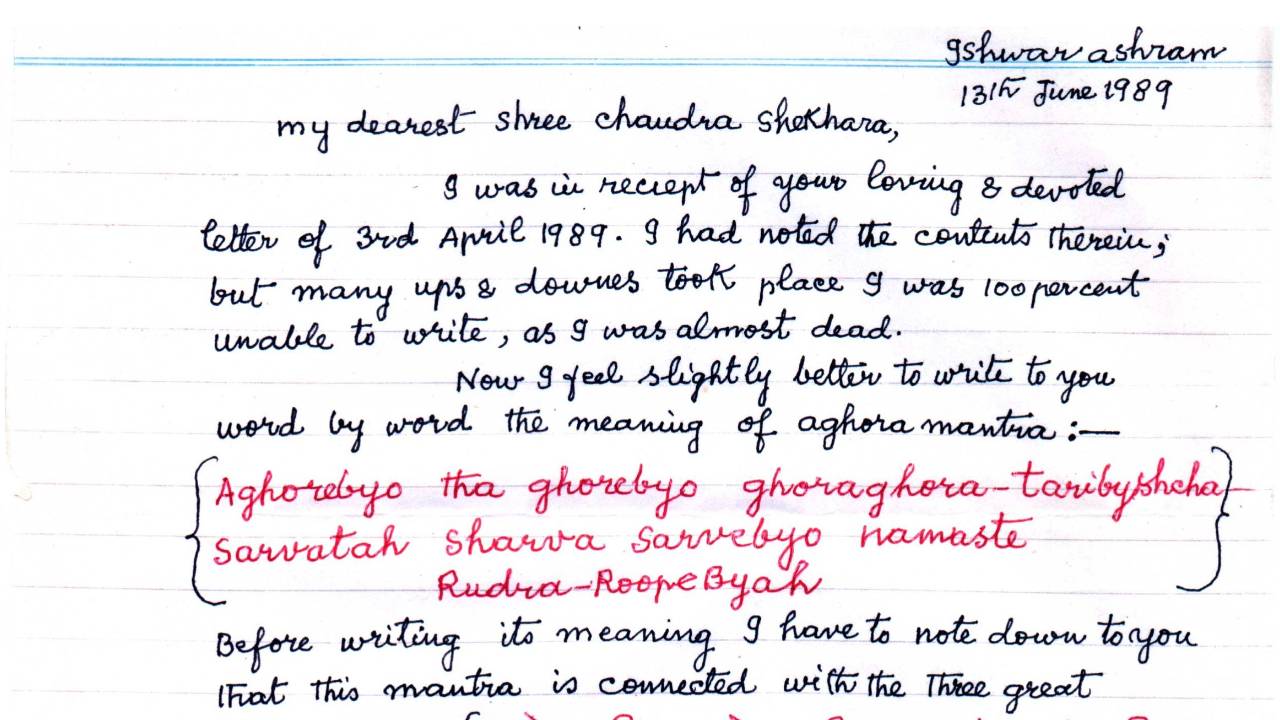 Ishwar ashram
13th June 1989
my dearest shree chandra sheKhara,
I was in reciept of your loving & devoted
letter of 3rd April 1989. I had noted the contents therein;
but many ups & downes took place I was 100 percent
unable to write, as I was almost dead.
Now I feel slightly better to write to you
word by word the meaning of aghora mantra :—
{Aghorebyo tha ghorebyo ghoraghora-taribyshcha-
sarvatah sharva sarvebyo namaste
Rudra-RoopeByah}
Before writing its meaning I have to note down to you
that this mantra is connected with the Three great